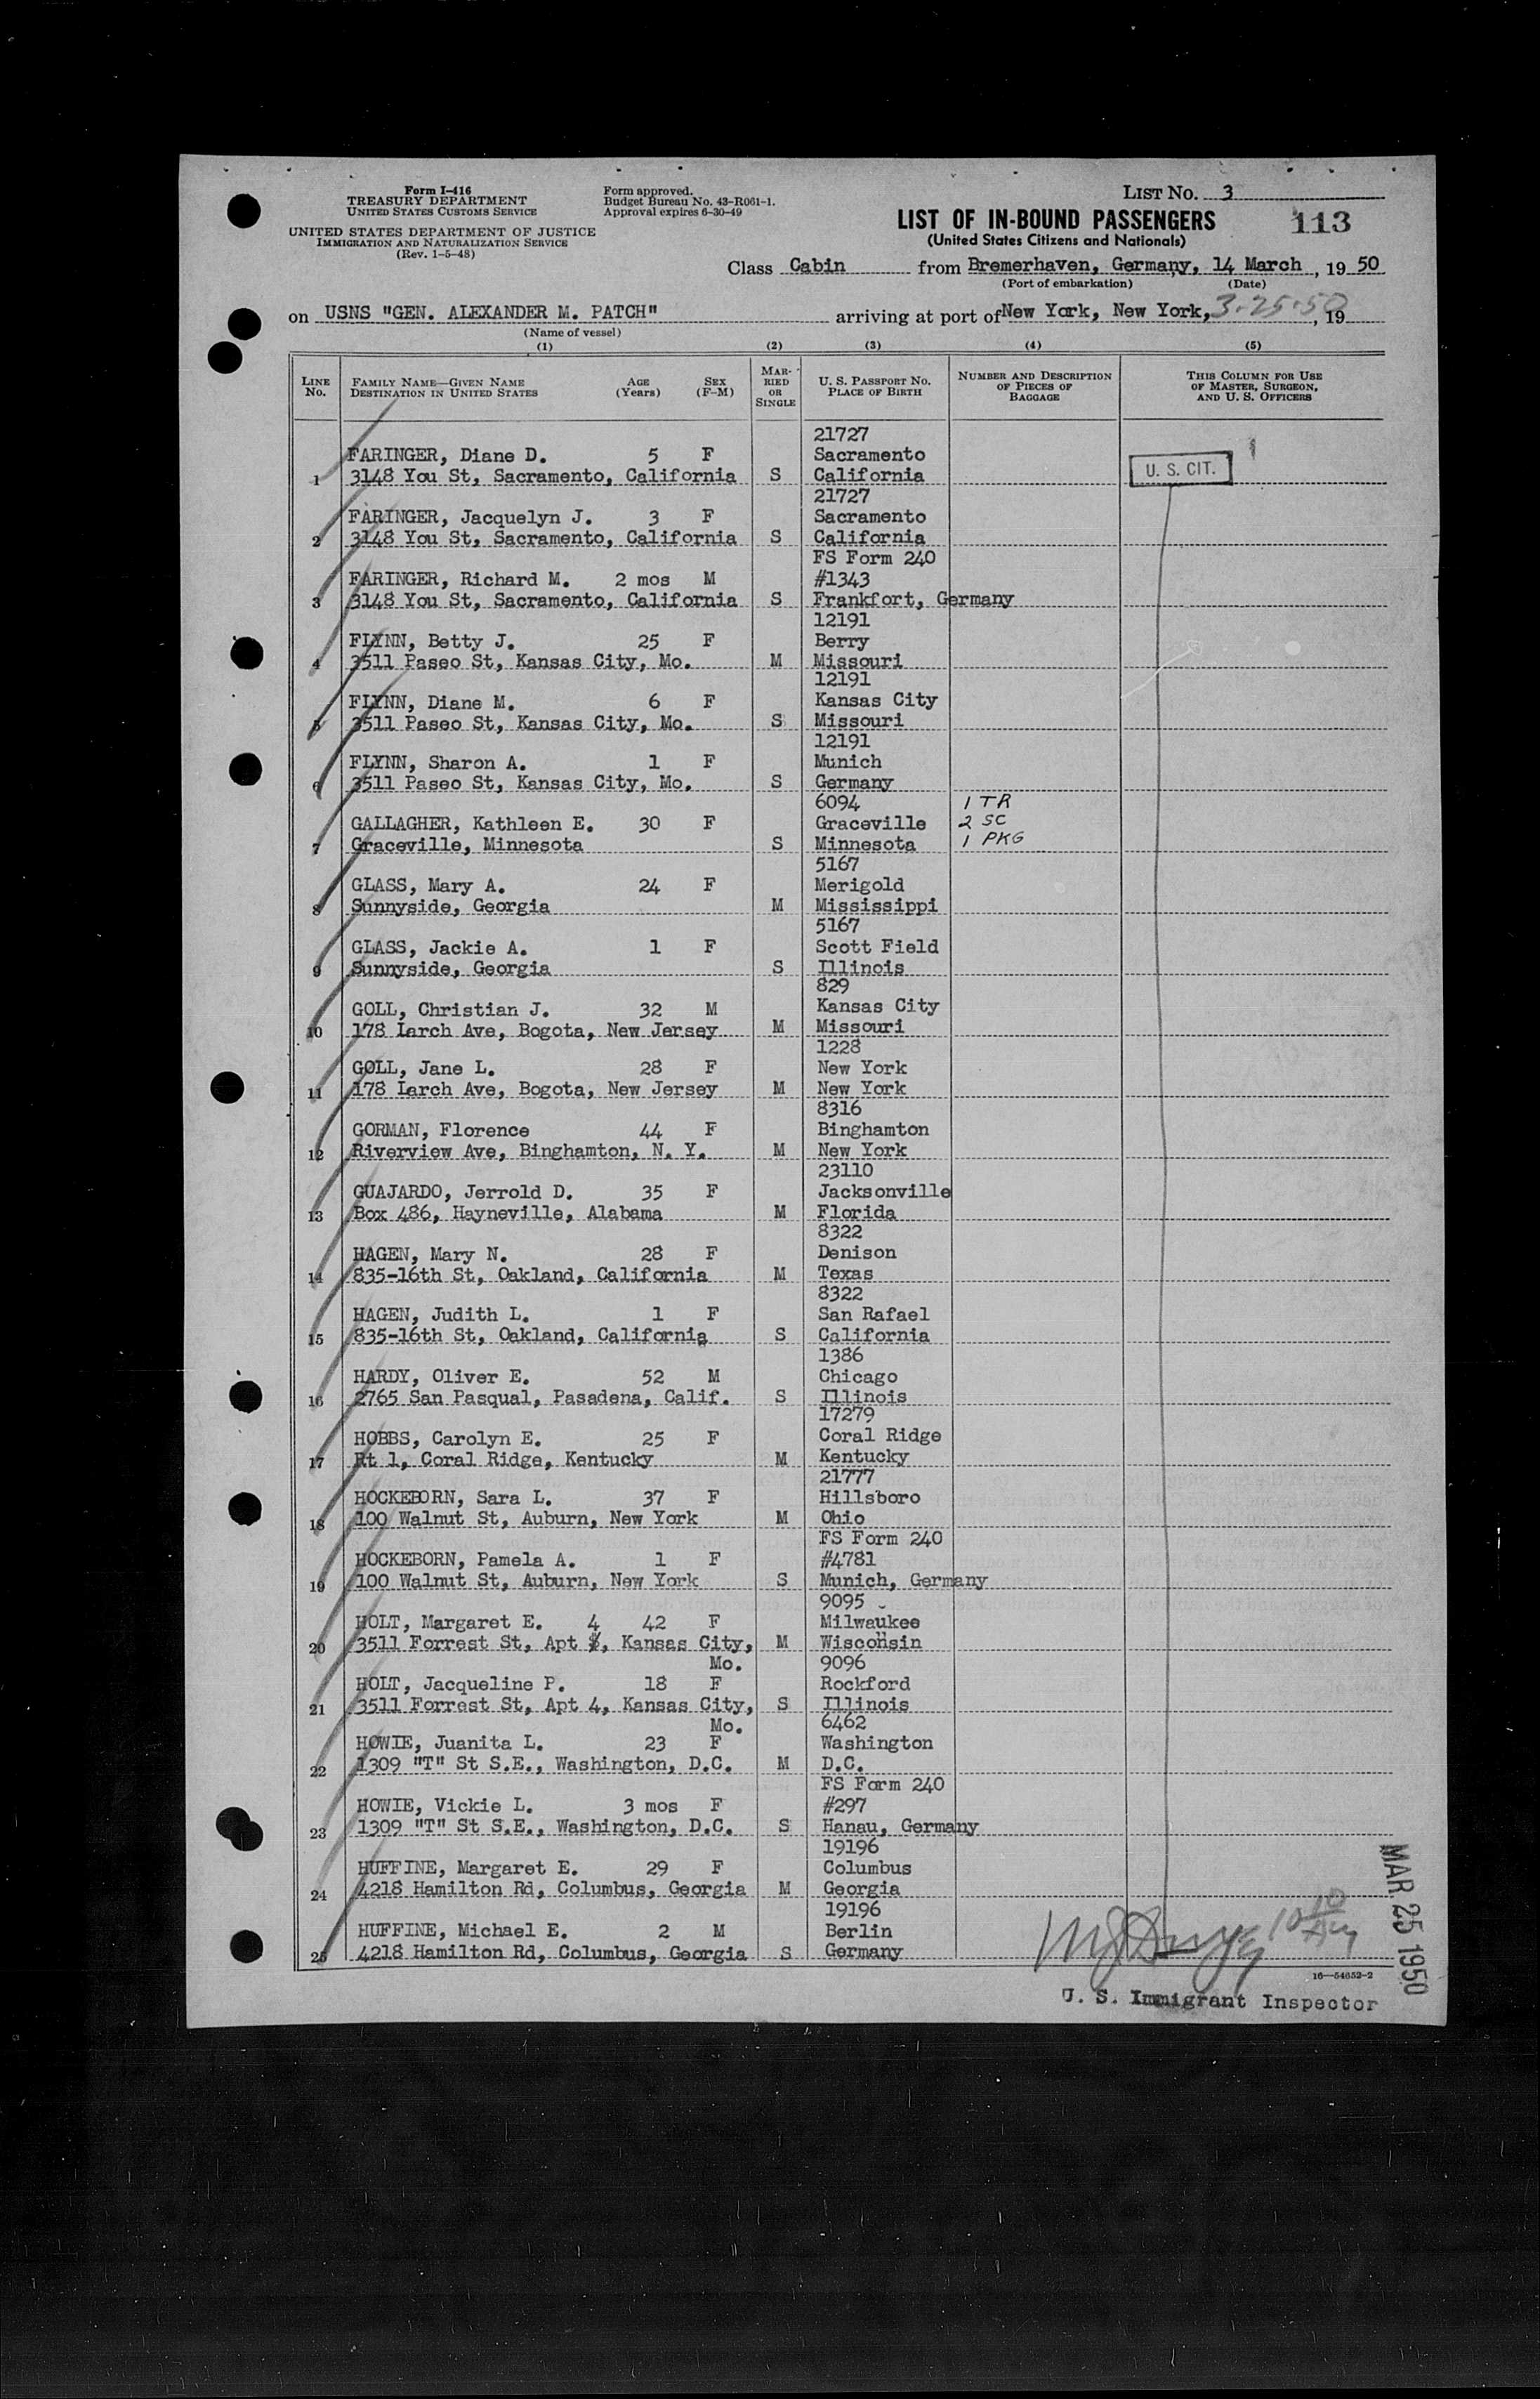 Form I-416
TREASURY DEPARTMENT
UNITED STATES CUSTOMS SERVICE
UNITED STATES DEPARTMENT OF JUSTICE
IMMIGRATION AND NATURALIZATION SERVICE
(Rev. 1-5-48)
Form approved.
Budget Bureau No. 43-R061-1.
Approval expires 6-30-49
LIST NO. 3
LIST OF IN-BOUND PASSENGERS
113
(United States Citizens and Nationals)
Class Cabin from Bremerhaven, Germany, 14 March, 19 50
(Port of embarkation) (Date)
on USNS "GEN. ALEXANDER M. PATCH" arriving at port of New York, New York, 3-25-50, 19
(Name of vessel)
(1) (2) (3) (4) (5)
LINE NO.
FAMILY NAME—GIVEN NAME AGE SEX
DESTINATION IN UNITED STATES (Years) (F-M)
MARRIED OR SINGLE
U. S. PASSPORT NO.
PLACE OF BIRTH
NUMBER AND DESCRIPTION
OF PIECES OF
BAGGAGE
THIS COLUMN FOR USE
OF MASTER, SURGEON,
AND U. S. OFFICERS
21727
FARINGER, Diane D. 5 F Sacramento
1 3148 You St, Sacramento, California S California
U. S. CIT.
21727
FARINGER, Jacquelyn J. 3 F Sacramento
2 3148 You St, Sacramento, California S California
FS Form 240
FARINGER, Richard M. 2 mos M #1343
3 3148 You St, Sacramento, California S Frankfort, Germany
12191
FLYNN, Betty J. 25 F Berry
4 3511 Paseo St, Kansas City, Mo. M Missouri
12191
FLYNN, Diane M. 6 F Kansas City
5 3511 Paseo St, Kansas City, Mo. S Missouri
12191
FLYNN, Sharon A. 1 F Munich
6 3511 Paseo St, Kansas City, Mo. S Germany
6094 1 TR
GALLAGHER, Kathleen E. 30 F Graceville 2 SC
7 Graceville, Minnesota S Minnesota 1 PKG
5167
GLASS, Mary A. 24 F Merigold
8 Sunnyside, Georgia M Mississippi
5167
GLASS, Jackie A. 1 F Scott Field
9 Sunnyside, Georgia S Illinois
829
GOLL, Christian J. 32 M Kansas City
10 178 Larch Ave, Bogota, New Jersey M Missouri
1228
GOLL, Jane L. 28 F New York
11 178 Larch Ave, Bogota, New Jersey M New York
8316
GORMAN, Florence 44 F Binghamton
12 Riverview Ave, Binghamton, N. Y. M New York
23110
GUAJARDO, Jerrold D. 35 F Jacksonville
13 Box 486, Hayneville, Alabama M Florida
8322
HAGEN, Mary N. 28 F Denison
14 835-16th St, Oakland, California M Texas
8322
HAGEN, Judith L. 1 F San Rafael
15 835-16th St, Oakland, California S California
1386
HARDY, Oliver E. 52 M Chicago
16 2765 San Pasqual, Pasadena, Calif. S Illinois
17279
HOBBS, Carolyn E. 25 F Coral Ridge
17 Rt 1, Coral Ridge, Kentucky M Kentucky
21777
HOCKEBORN, Sara L. 37 F Hillsboro
18 100 Walnut St, Auburn, New York M Ohio
FS Form 240
HOCKEBORN, Pamela A. 1 F #4781
19 100 Walnut St, Auburn, New York S Munich, Germany
9095
HOLT, Margaret E. 4 42 F Milwaukee
20 3511 Forrest St, Apt , Kansas City, M Wisconsin
Mo. 9096
HOLT, Jacqueline P. 18 F Rockford
21 3511 Forrest St, Apt 4, Kansas City, S Illinois
Mo. 6462
HOWIE, Juanita L. 23 F Washington
22 1309 "T" St S.E., Washington, D.C. M D.C.
FS Form 240
HOWIE, Vickie L. 3 mos F #297
23 1309 "T" St S.E., Washington, D.C. S Hanau, Germany
19196
HUFFINE, Margaret E. 29 F Columbus
24 4218 Hamilton Rd, Columbus, Georgia M Georgia
19196
HUFFINE, Michael E. 2 M Berlin
25 4218 Hamilton Rd, Columbus, Georgia S Germany
MAR 25 1950
16—54652-2
U. S. Immigrant Inspector